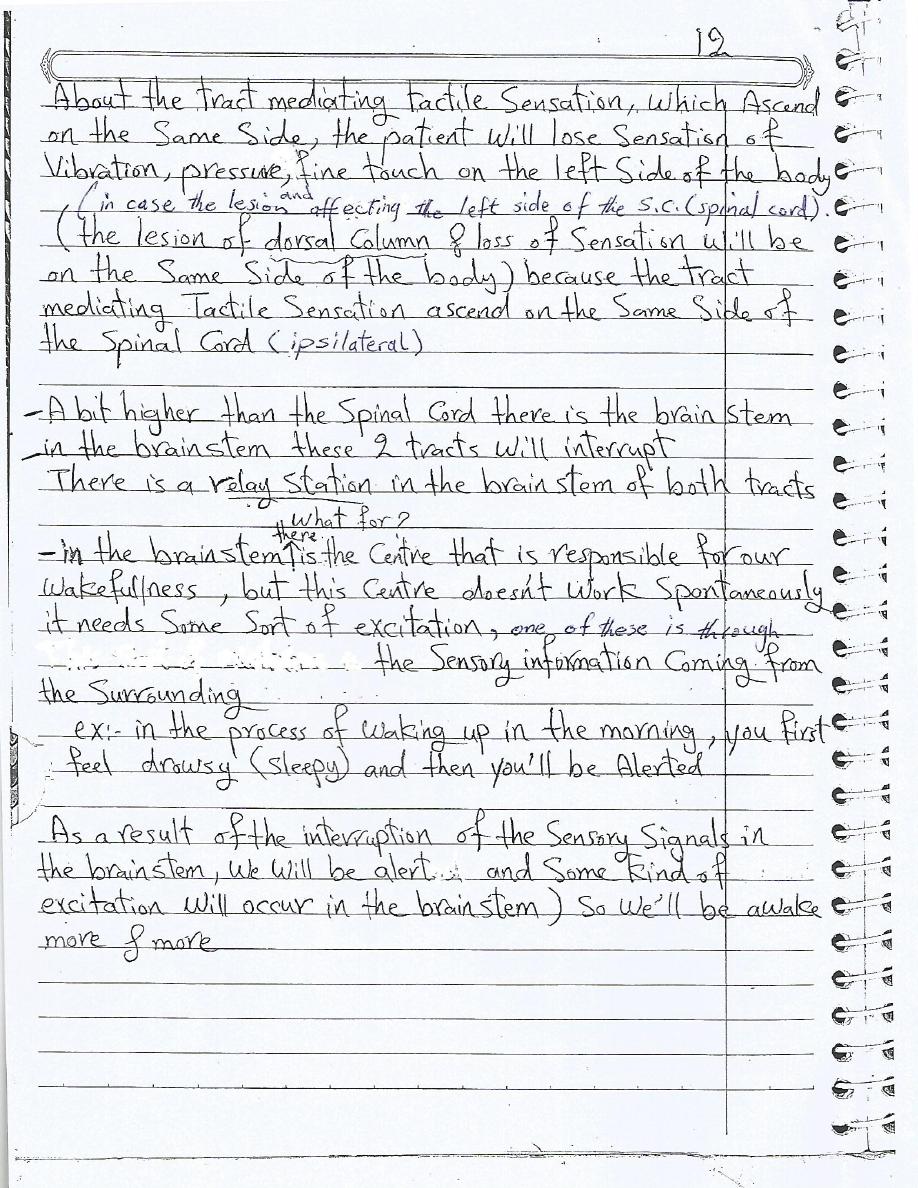 12
About the tract mediating tactile Sensation, which Ascend
on the Same Side, the patient will lose Sensation of
Vibration, pressure, fine touch on the left Side of the body
(in case the lesion and affecting the left side of the s.c. (spinal cord).
(the lesion of dorsal Column & loss of Sensation will be
on the Same Side of the body) because the tract
mediating Tactile Sensation ascend on the Same Side of
the Spinal Cord (ipsilateral)
- A bit higher than the Spinal Cord there is the brain stem
- in the brainstem these 2 tracts will interrupt
There is a relay Station in the brain stem of both tracts
What for?
- in the brainstem there is the Centre that is responsible for our
wakefullness, but this Centre doesn't work Spontaneously
it needs Some Sort of excitation, one of these is through
the Sensory information Coming from
the Surrounding
ex:- in the process of waking up in the morning, you first
feel drowsy (Sleepy) and then you'll be Alerted
As a result of the interruption of the Sensory Signals in
the brainstem, we will be alert and Some kind of
excitation will occur in the brainstem) So we'll be awake
more & more